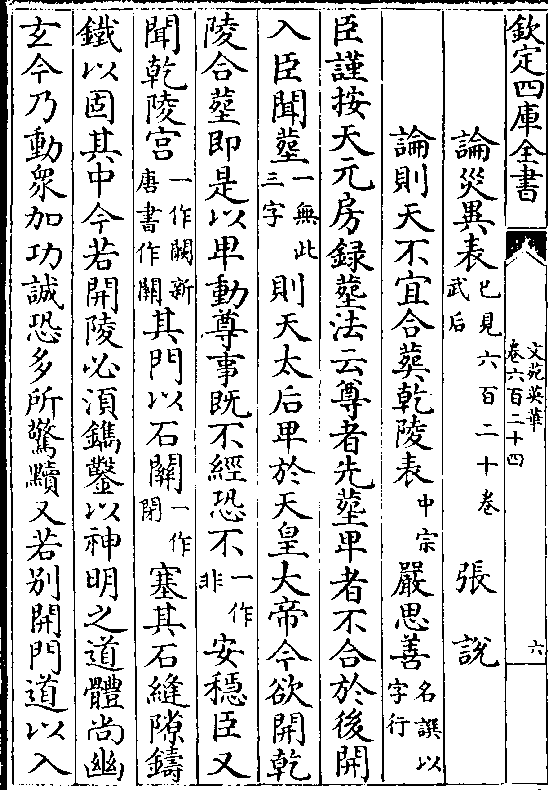 欽定四庫全書
文苑英華
卷六百二十四
六
論災異表武后已見六百二十卷 張說
論則天不宜合葬乾陵表中宗 嚴思善名譔以字行
臣謹按天元房録塟法云尊者先塟卑者不合於後開
入臣聞塟一無此三字則天太后卑於天皇大帝今欲開乾
陵合塟即是以卑動尊事既不經恐不一作非安穩臣又
聞乾陵宫一作闕新唐書作關其門以石闗一作閉塞其石縫隙鑄
鐵以固其中今若開陵必湏鐫鑿以神明之道體尚幽
玄今乃動衆加功誠恐多所驚黷又若别開門道以入